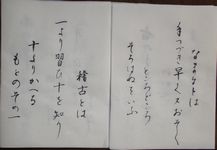 なまるとは
手つづき早く又おそく
ところどころの
そろはぬをいふ
稽古とは
一より習ひ十を知り
十よりかへる
もとのその一